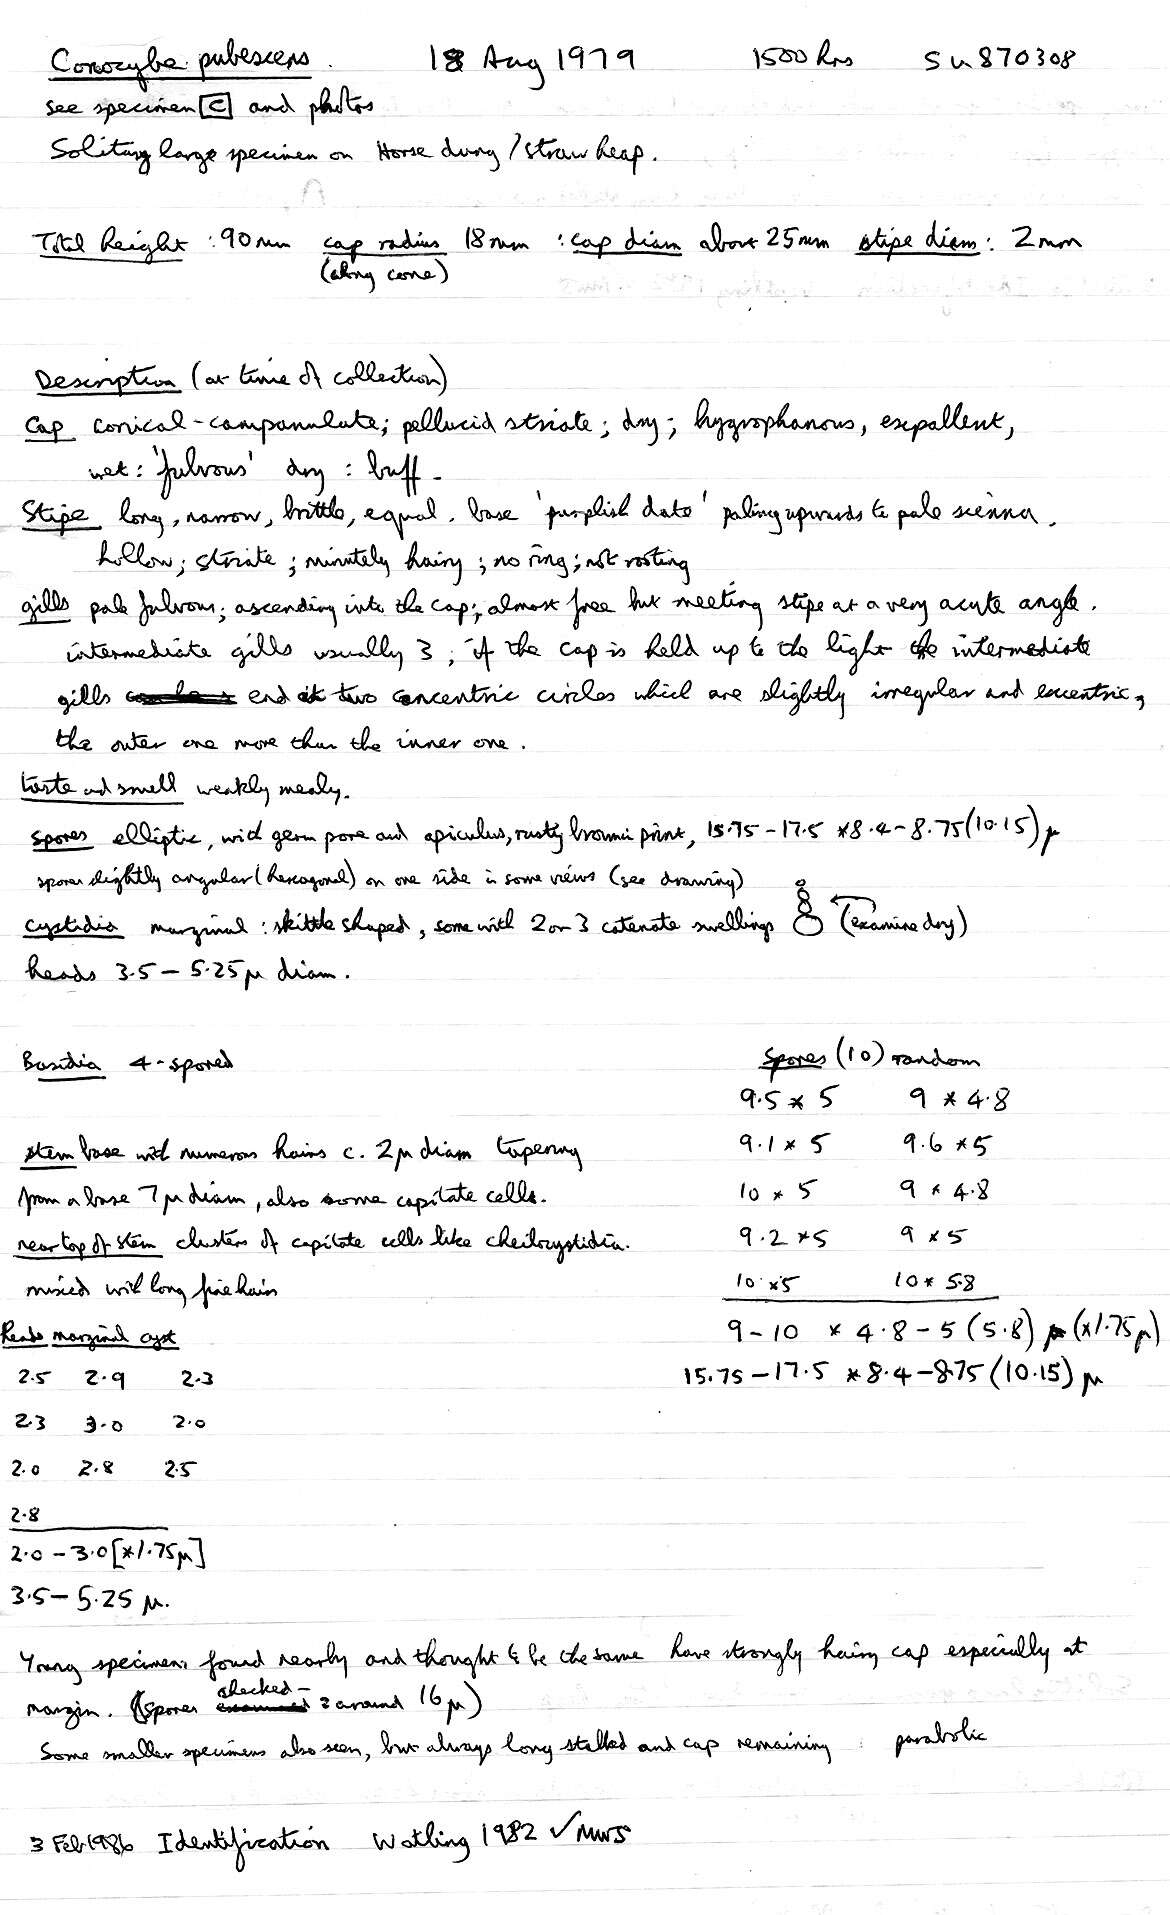 Conocybe pubescens. 18 Aug 1979 1500 hrs SU 870308
see specimen [C] and photos
Solitary large specimen on Horse dung / straw heap.
Total height : 90 mm cap radius 18 mm : cap diam about 25 mm stipe diam : 2 mm
(along cone)
Description (at time of collection)
Cap conical-campanulate; pellucid striate; dry; hygrophanous, expallent,
wet : 'fulvous' dry : buff -
Stipe long, narrow, brittle, equal. base 'purplish date' paling upwards to pale sienna.
hollow; striate; minutely hairy; no ring; not rooting
gills pale fulvous; ascending into the cap; almost free but meeting stipe at a very acute angle.
intermediate gills usually 3; if the cap is held up to the light the intermediate
gills end at two concentric circles which are slightly irregular and eccentric,
the outer one more than the inner one.
taste and smell weakly mealy.
spores elliptic, with germ pore and apiculus, rusty brown print, 15.75 - 17.5 * 8.4 - 8.75 (10.15) μ
spores slightly angular (hexagonal) on one side in some views (see drawing)
cystidia marginal : skittle shaped, some with 2 or 3 catenate swellings (examine dry)
heads 3.5 - 5.25 μ diam.
Basidia 4-spored
stem base with numerous hairs c. 2 μ diam tapering
from a base 7 μ diam, also some capitate cells.
near top of stem clusters of capitate cells like cheilocystidia.
mixed with long fine hairs
Spores (10) random
9.5 * 5 9 * 4.8
9.1 * 5 9.6 * 5
10 * 5 9 * 4.8
9.2 * 5 9 * 5
10 * 5 10 * 5.8
9 - 10 * 4.8 - 5 (5.8) μ (*1.75 μ)
15.75 - 17.5 * 8.4 - 8.75 (10.15) μ
heads marginal cyst
2.5 2.9 2.3
2.3 3.0 2.0
2.0 2.8 2.5
2.8
2.0 - 3.0 [*1.75 μ]
3.5 - 5.25 μ.
Young specimens found nearby and thought to be the same have strongly hairy cap especially at
margin. (spores checked - around 16 μ)
Some smaller specimens also seen, but always long stalked and cap remaining parabolic
3 Feb 1986 Identification Watling 1982 ✓ MWS